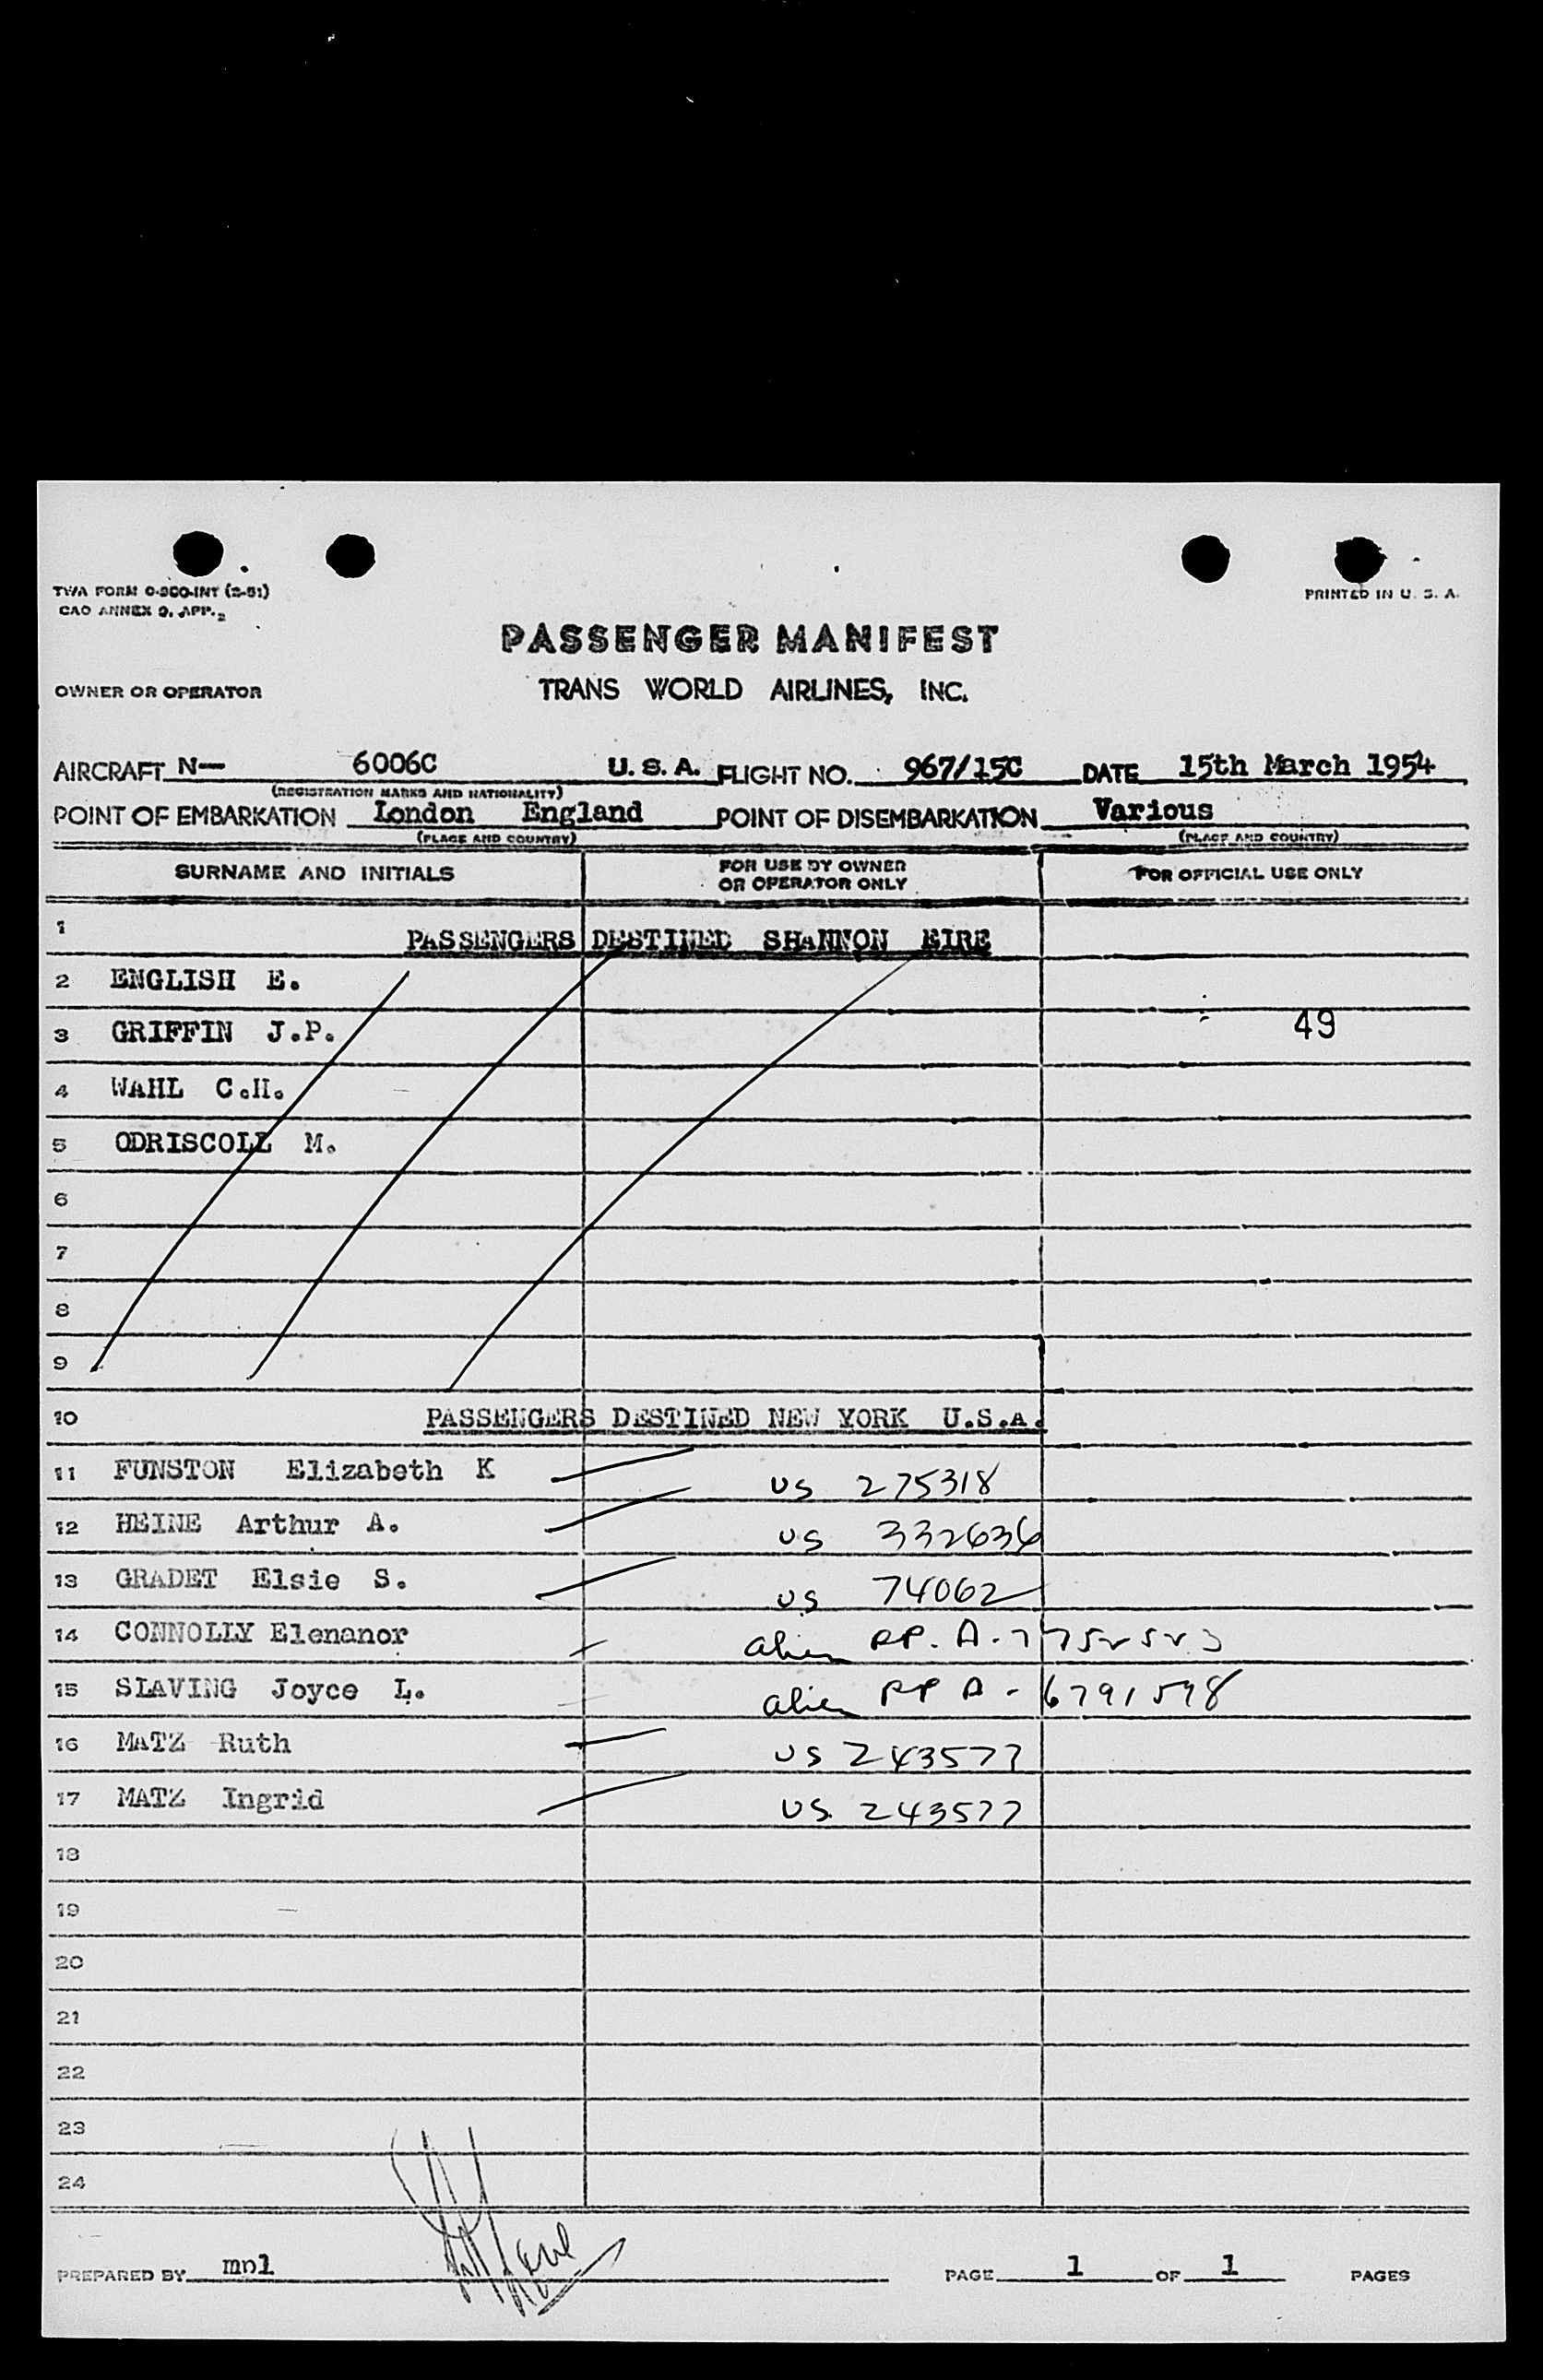 TWA FORM O-360-INT (2-51)
CAO ANNEX 9. APP. 2
PRINTED IN U. S. A.
PASSENGER MANIFEST
OWNER OR OPERATOR TRANS WORLD AIRLINES, INC.
AIRCRAFT N— 6006C U. S. A. FLIGHT NO. 967/15C DATE 15th March 1954
(REGISTRATION MARKS AND NATIONALITY)
POINT OF EMBARKATION London England POINT OF DISEMBARKATION Various
(PLACE AND COUNTRY) (PLACE AND COUNTRY)
SURNAME AND INITIALS FOR USE BY OWNER OR OPERATOR ONLY FOR OFFICIAL USE ONLY
1 PASSENGERS DESTINED SHANNON EIRE
2 ENGLISH E.
3 GRIFFIN J.P. 49
4 WAHL C.H.
5 ODRISCOLL M.
6
7
8
9
10 PASSENGERS DESTINED NEW YORK U.S.A.
11 FUNSTON Elizabeth K US 275318
12 HEINE Arthur A. US 332636
13 GRADET Elsie S. US 74062
14 CONNOLLY Elenanor alien RP. A-
15 SLAVING Joyce L. alien RP A - 6791598
16 MATZ Ruth US 243577
17 MATZ Ingrid US. 243577
18
19
20
21
22
23
24
PREPARED BY mpl PAGE 1 OF 1 PAGES